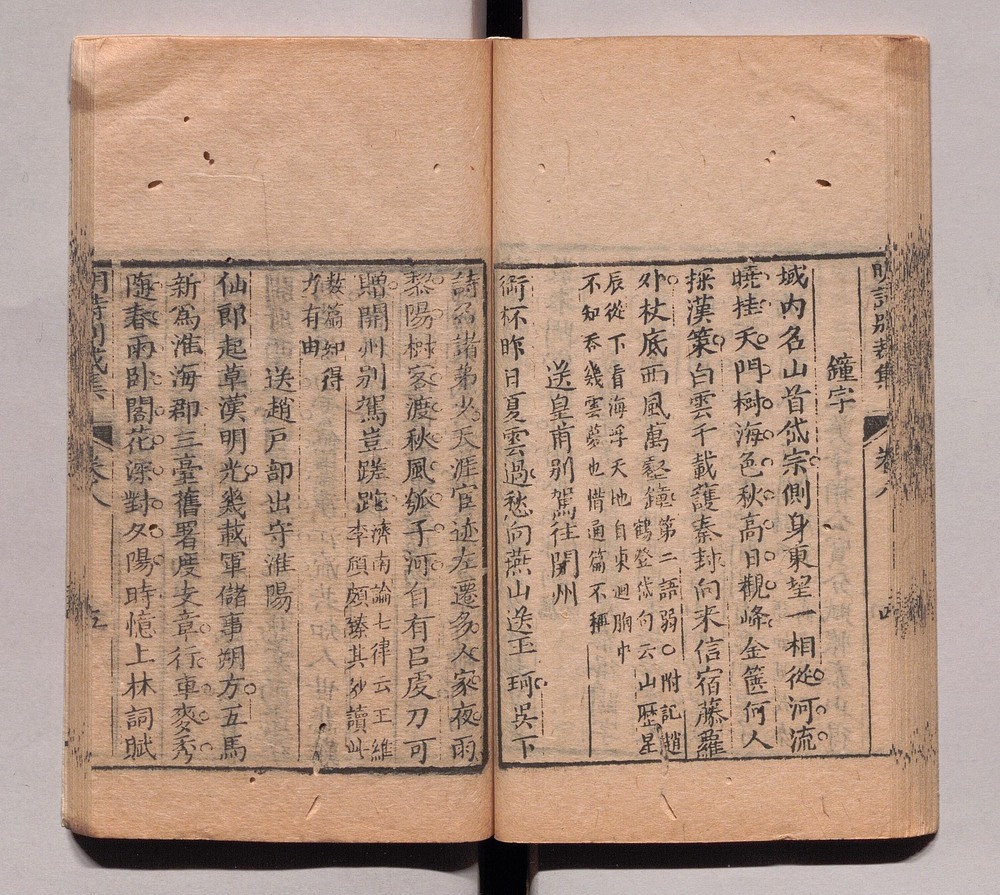 鐘字
域内名山首岱宗側身東望一相從河流
曉挂天門樹海色秋高日觀峰金篋何人
探漢策白雲千載護秦封向来信宿藤蘿
外杖底西風萬壑鐘
第二語弱〇附記趙
鶴登岱句云山壓星
辰從下看海浮天地自東迴胸中
不知吞幾雲夢也惜通篇不稱
送皇甫别駕往開州
銜杯昨日夏雲過愁向燕山送玉珂吳下
詩名諸弟少天涯官迹左遷多人家夜雨
黎陽樹客渡秋風瓠子河自有呂虔刀可
贈開州别駕豈蹉跎
濟南論七律云王維
李頎頗臻其妙讀此
數篇知得
力有由
送趙戸部出守淮陽
仙郎起草漢明光幾載軍儲事朔方五馬
新為淮海郡三臺舊署度文章行車麥秀
隨春雨卧閣花深對夕陽時憶上林詞賦
明詩别裁集
卷八
四
明詩别裁集
卷八
五